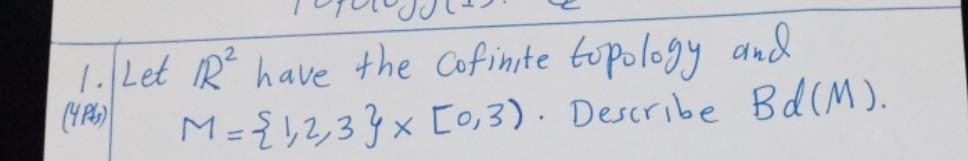 1. Let ℝ² have the cofinite topology and
(4 Pts) M = {1,2,3} × [0,3). Describe Bd(M).